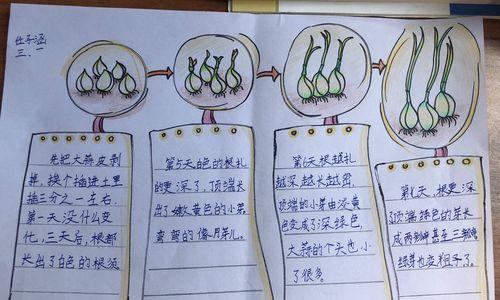 杜子涵
三、一
先把大蒜皮剥
掉，挨个插进土里
插三分之一左右，
第一天没什么变
化，三天后，根都
长出了白色的根须
第5天白色的根扎
的更深了，顶端长
出了嫩黄色的小芽，
弯弯的像月牙儿。
第6天根越扎
越深越长越密，
顶端的小芽由淡黄
色变成了深绿色，
大蒜的个头也小
了很多。
第七天，根更深
了顶端绿色的芽长
成两甚至三
绿芽也变粗了。